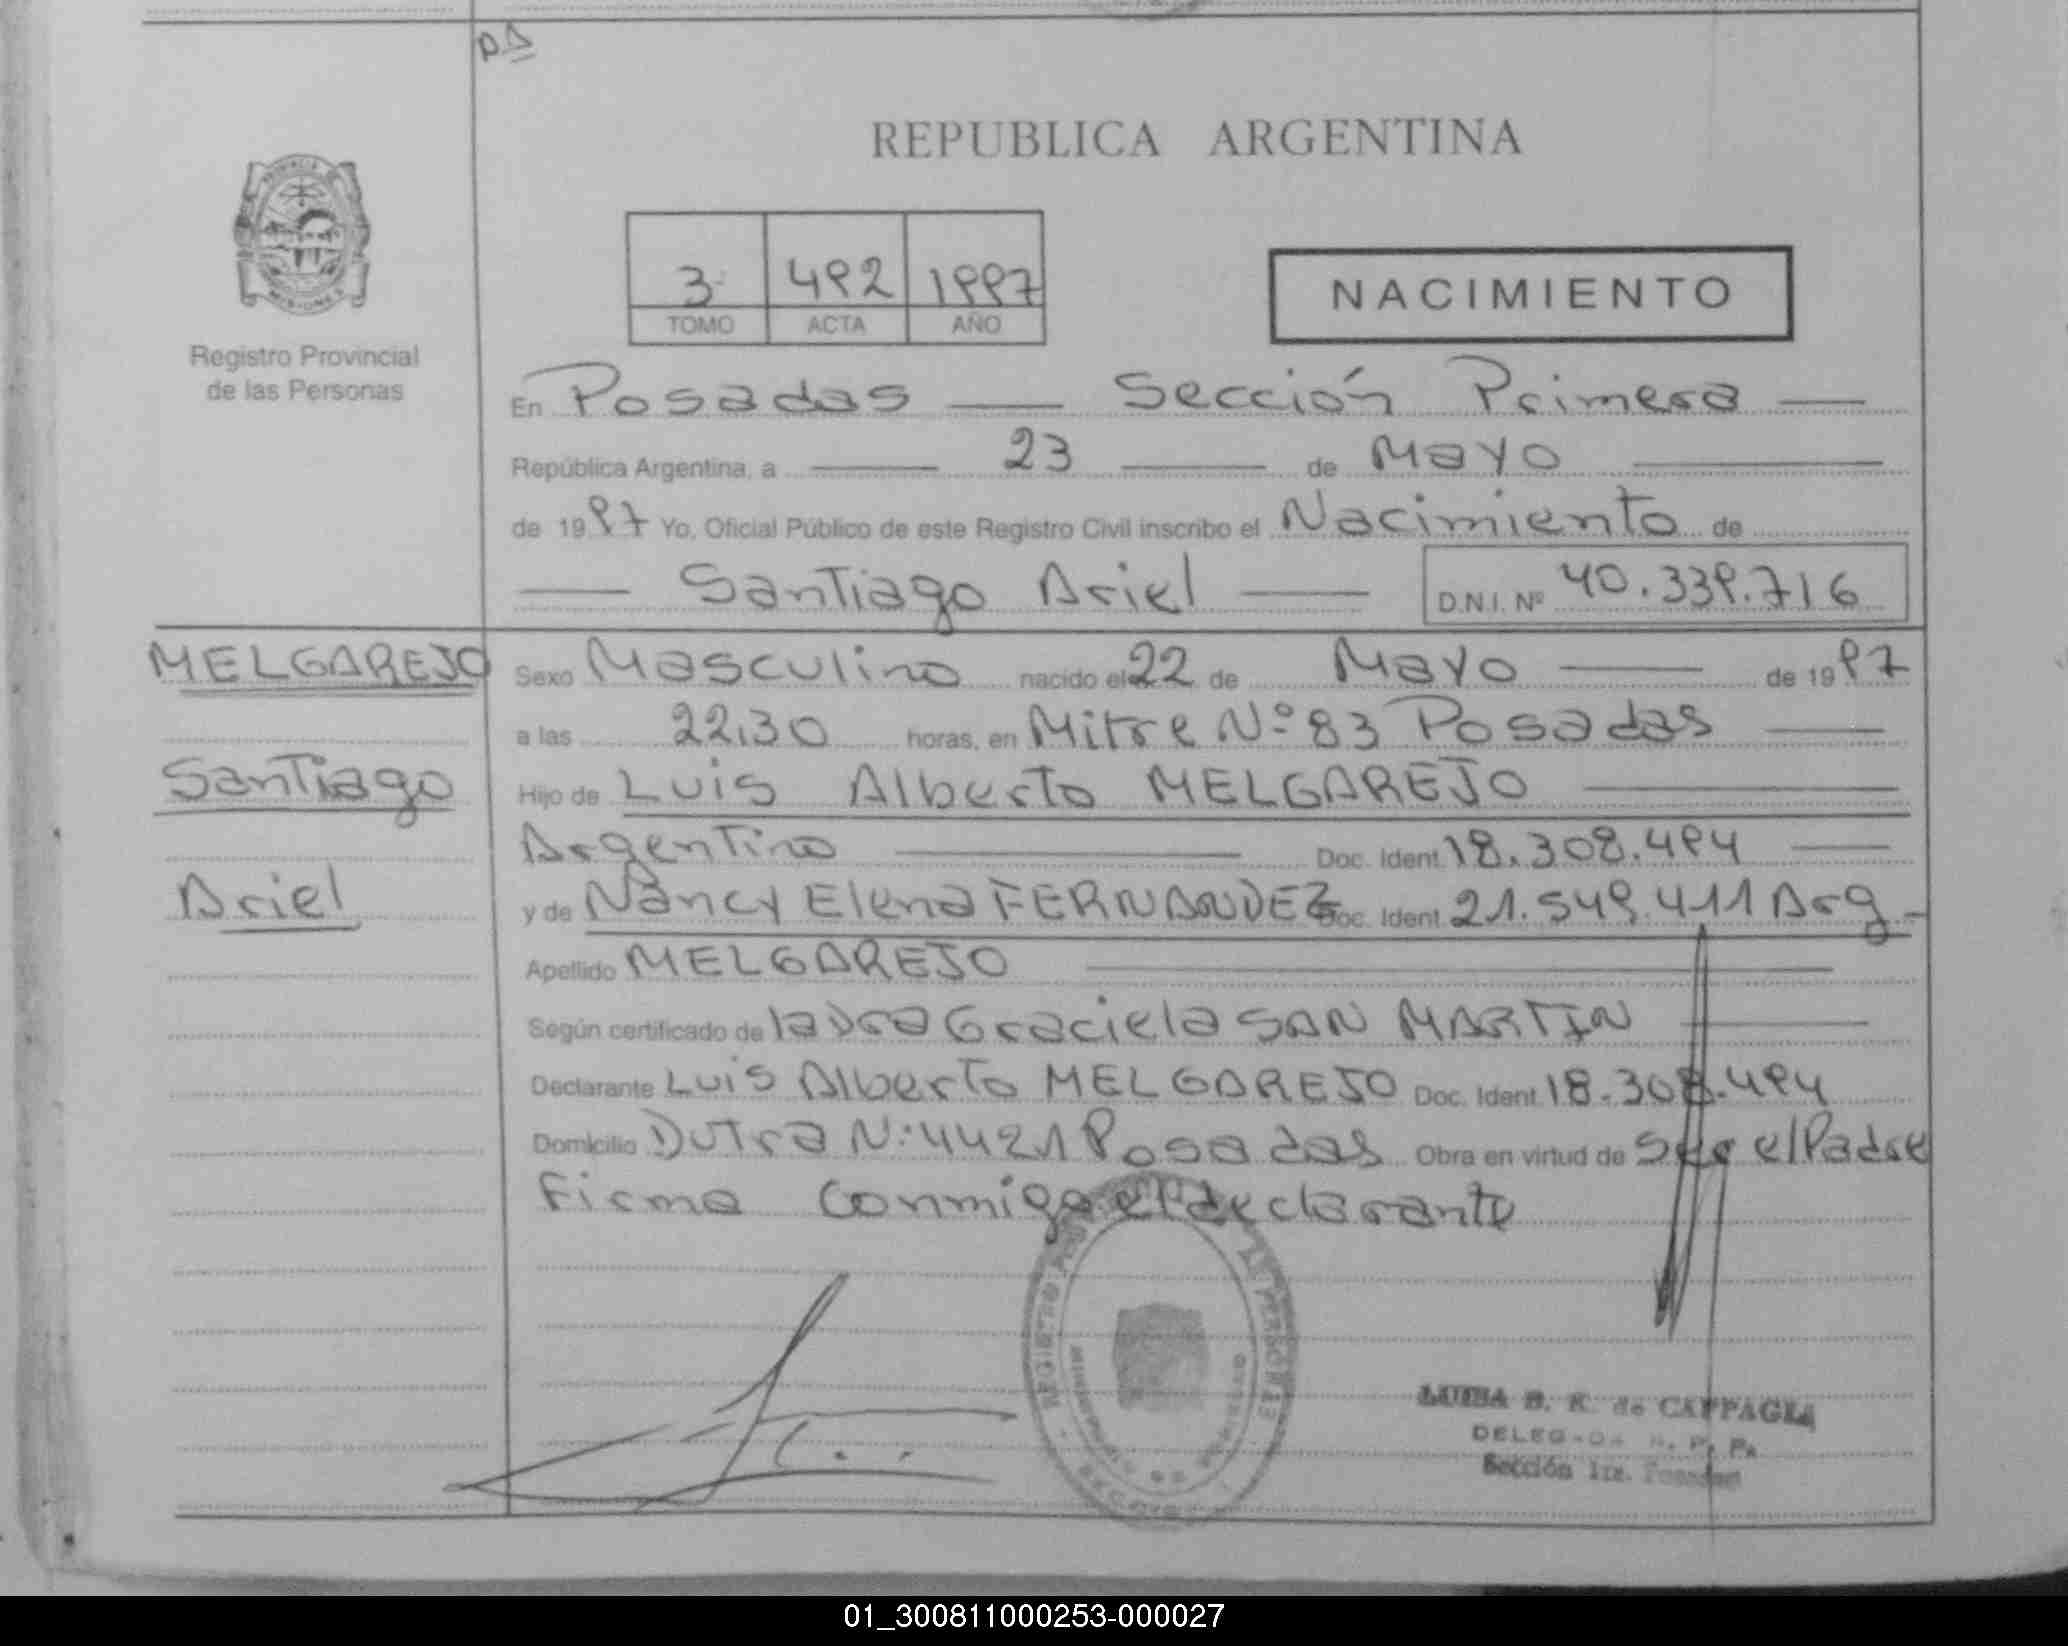 D.S
REPUBLICA ARGENTINA
3 492 1997
TOMO ACTA AÑO
NACIMIENTO
PROVINCIA DE MISIONES
Registro Provincial
de las Personas
En Posadas — Sección Primera —
República Argentina, a — 23 — de Mayo —
de 1997 Yo, Oficial Público de este Registro Civil inscribo el Nacimiento de
— Santiago Ariel — D.N.I. Nº 40.339.716
MELGAREJO
Santiago
Ariel
Sexo Masculino nacido el 22 de Mayo — de 1997
a las 22,30 horas, en Mitre Nº 83 Posadas —
Hijo de Luis Alberto MELGAREJO —
Argentino — Doc. Ident. 18.308.494 —
y de Nancy Elena FERNANDEZ Doc. Ident. 21.549.411 Arg -
Apellido MELGAREJO —
Según certificado de la Dra Graciela SAN MARTIN —
Declarante Luis Alberto MELGAREJO Doc. Ident. 18.308.494
Domicilio Dutra N: 4421 Posadas Obra en virtud de Ser el Padre
Firma conmigo el declarante
REGISTRO DE LAS PERSONAS
LUISA B. K. de CAPPAGLI
DELEGADA R. P. P.
Sección 1ra. Posadas
01_300811000253-000027